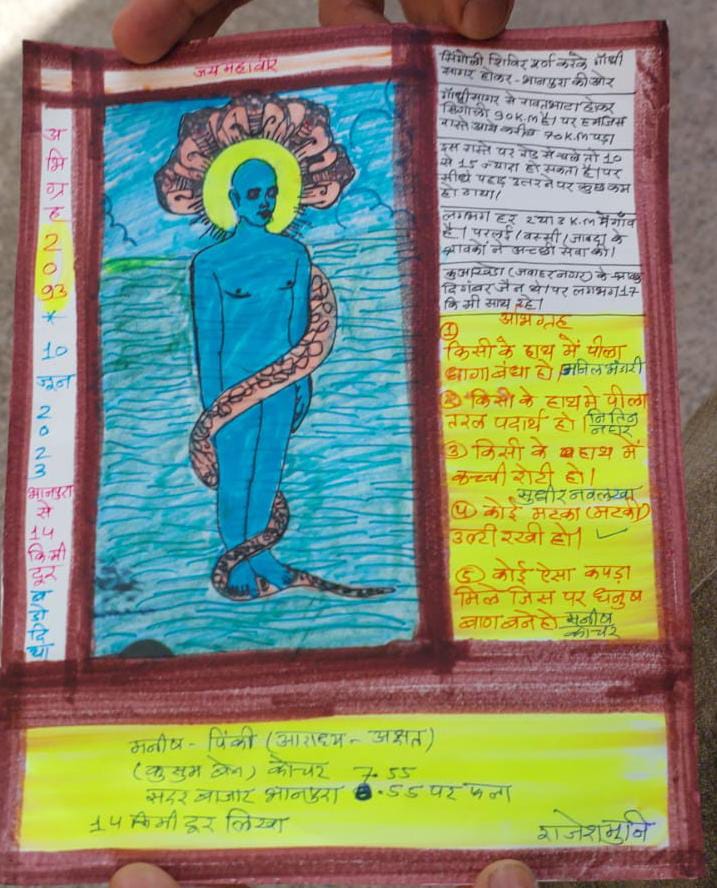 जय महावीर
अभिग्रह 2093 * 10 जून 2023 भानपुरा से 14 किमी दूर बडोदिया
सिंगोली शिविर पूर्ण करके गाँधी
सागर होकर - भानपुरा की ओर
गाँधीसागर से रावतभाटा होकर
सिंगोली 90 K.M है। पर हम जिस
रास्ते आये करीब 70 K.M पड़ा
इस रास्ते पर रोड़ से चले तो 10
से 15 ज्यादा हो सकता है। पर
सीधे पहाड़ उतरने पर कुछ कम
हो गया।
लगभग हर 2 या 3 K.M में गाँव
है।
श्रावकों ने अच्छी सेवा की।
(जवाहरनगर) के
दिगंबर जैन थे। पर लगभग 17
कि मी साथ रहे।
अभिग्रह
① किसी के हाथ में पीला
धागा बंधा हो।
② किसी के हाथ मे पीला
तरल पदार्थ हो। नितिन
नाहर
③ किसी के हाथ में
कच्ची रोटी हो।
सुधीर नवलखा
④ कोई मटका (मटकी)
उल्टी रखी हो।
⑤ कोई ऐसा कपड़ा
मिले जिस पर धनुष
बाण बने हो मनीष
कोचर
मनीष - पिंकी (आराध्यम - अक्षत)
(कुसुम बेन) कोचर 7.55
सदर बाजार भानपुरा 8.55 पर फला
14 किमी दूर लिखा
राजेशमुनि